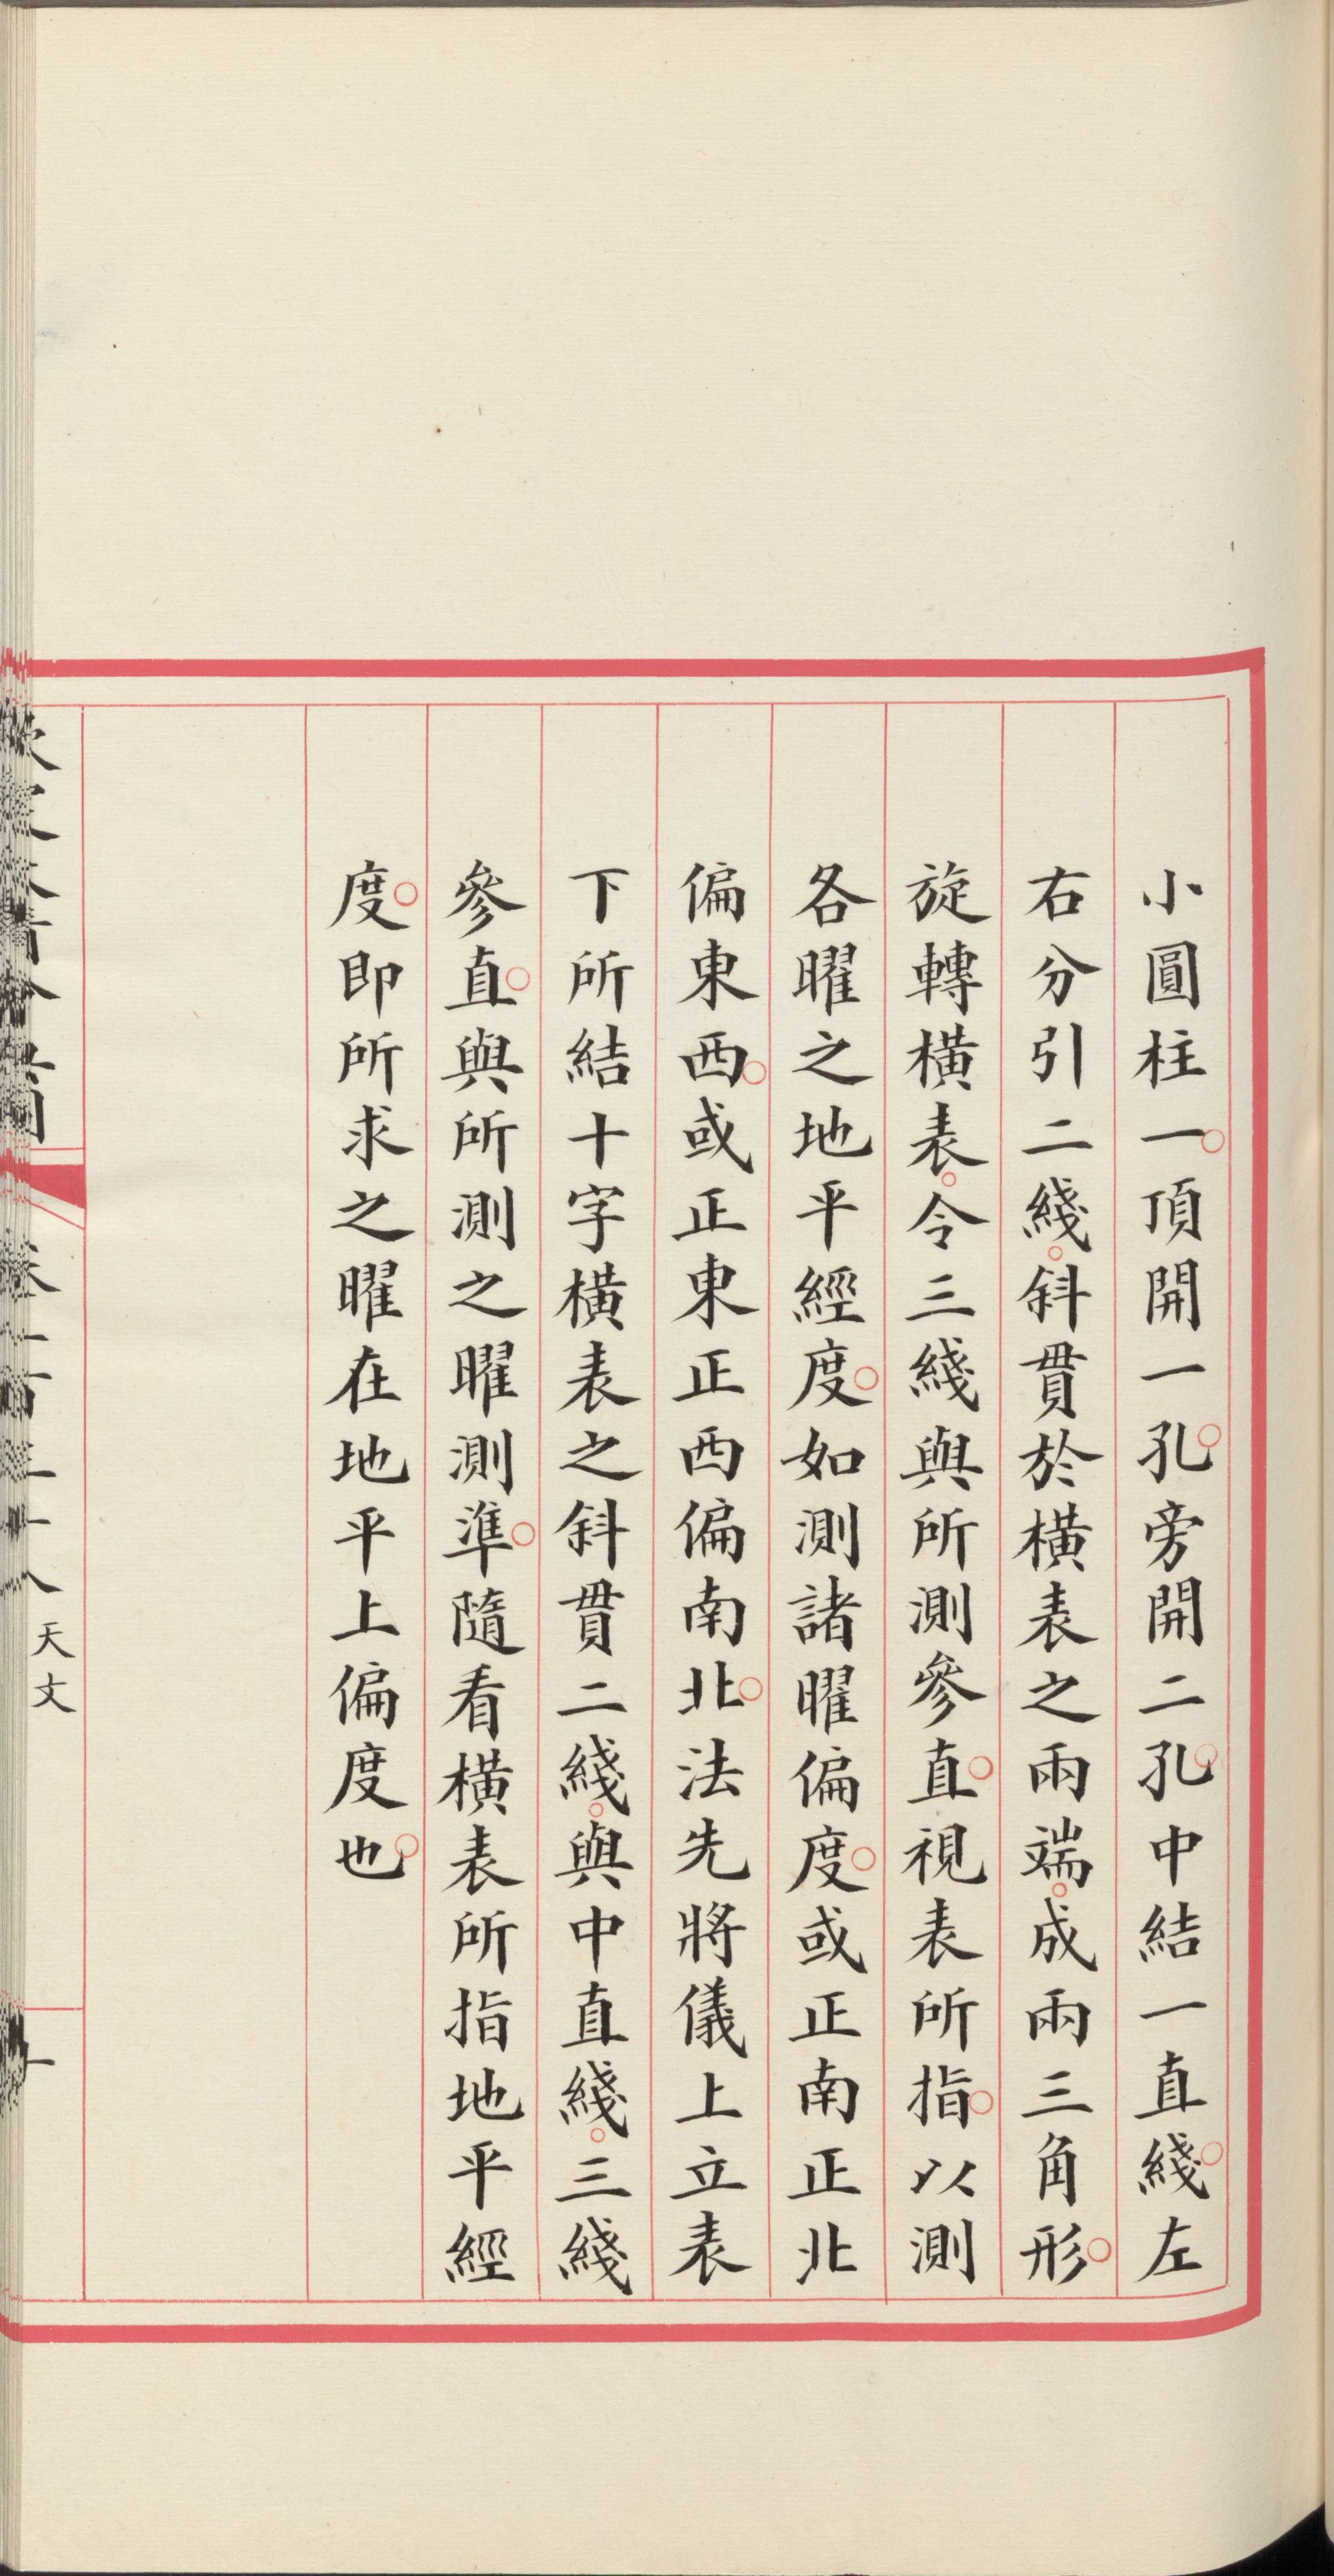 小圓柱一。頂開一孔。旁開二孔。中結一直綫。左
右分引二綫。斜貫於橫表之兩端。成兩三角形。
旋轉橫表。令三綫與所測參直。視表所指。以測
各曜之地平經度。如測諸曜偏度。或正南正北
偏東西。或正東正西偏南北。法先將儀上立表
下所結十字橫表之斜貫二綫。與中直綫。三綫
參直。與所測之曜測準。隨看橫表所指地平經
度。即所求之曜在地平上偏度也。
天文